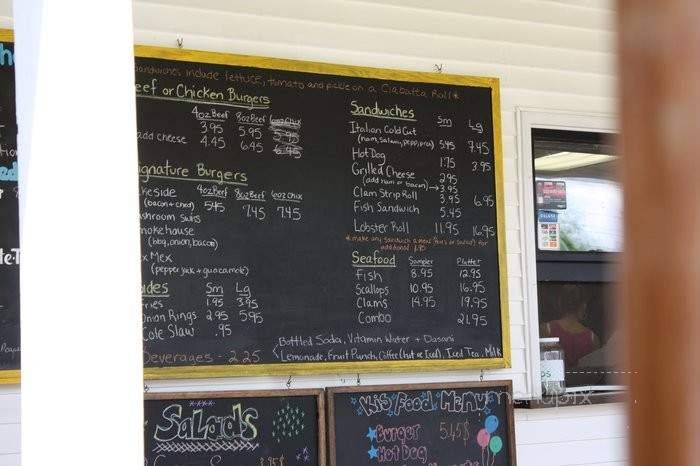 sandwiches include lettuce, tomato and pickle on a Ciabatta Roll *
eef or Chicken Burgers
4oz Beef 8oz Beef 6oz Chix
3.95 5.95
add cheese 4.45 6.45
ignature Burgers
keside 4oz Beef 8oz Beef 6oz Chix
(bacon + ched) 5.45 7.45 7.45
shroom Swiss
mokehouse
(bbq, onion, bacon)
x Mex
(pepper jack + guacamole)
ides Sm Lg
ries 1.95 3.95
nion Rings 2.95 5.95
Cole Slaw .95
Beverages - 2.25
Bottled Soda, Vitamin Water + Dasani
Lemonade, Fruit Punch, Coffee (hot or Iced), Iced Tea, Milk
Sandwiches Sm Lg
Italian Cold Cut
(ham, Salami, pepp, prov) 5.45 7.45
Hot Dog 1.75 3.95
Grilled Cheese 2.95
(add ham or bacon) → 3.95
Clam Strip Roll 3.95 6.95
Fish Sandwich 5.45
Lobster Roll 11.95 16.95
* make any sandwich a meal for
additional 1.95
Seafood Sampler Platter
Fish 8.95 12.95
Scallops 10.95 16.95
Clams 14.95 19.95
Combo 21.95
Salads
Kids Food Menu
Burger 5.45
Hot Dog
menupix